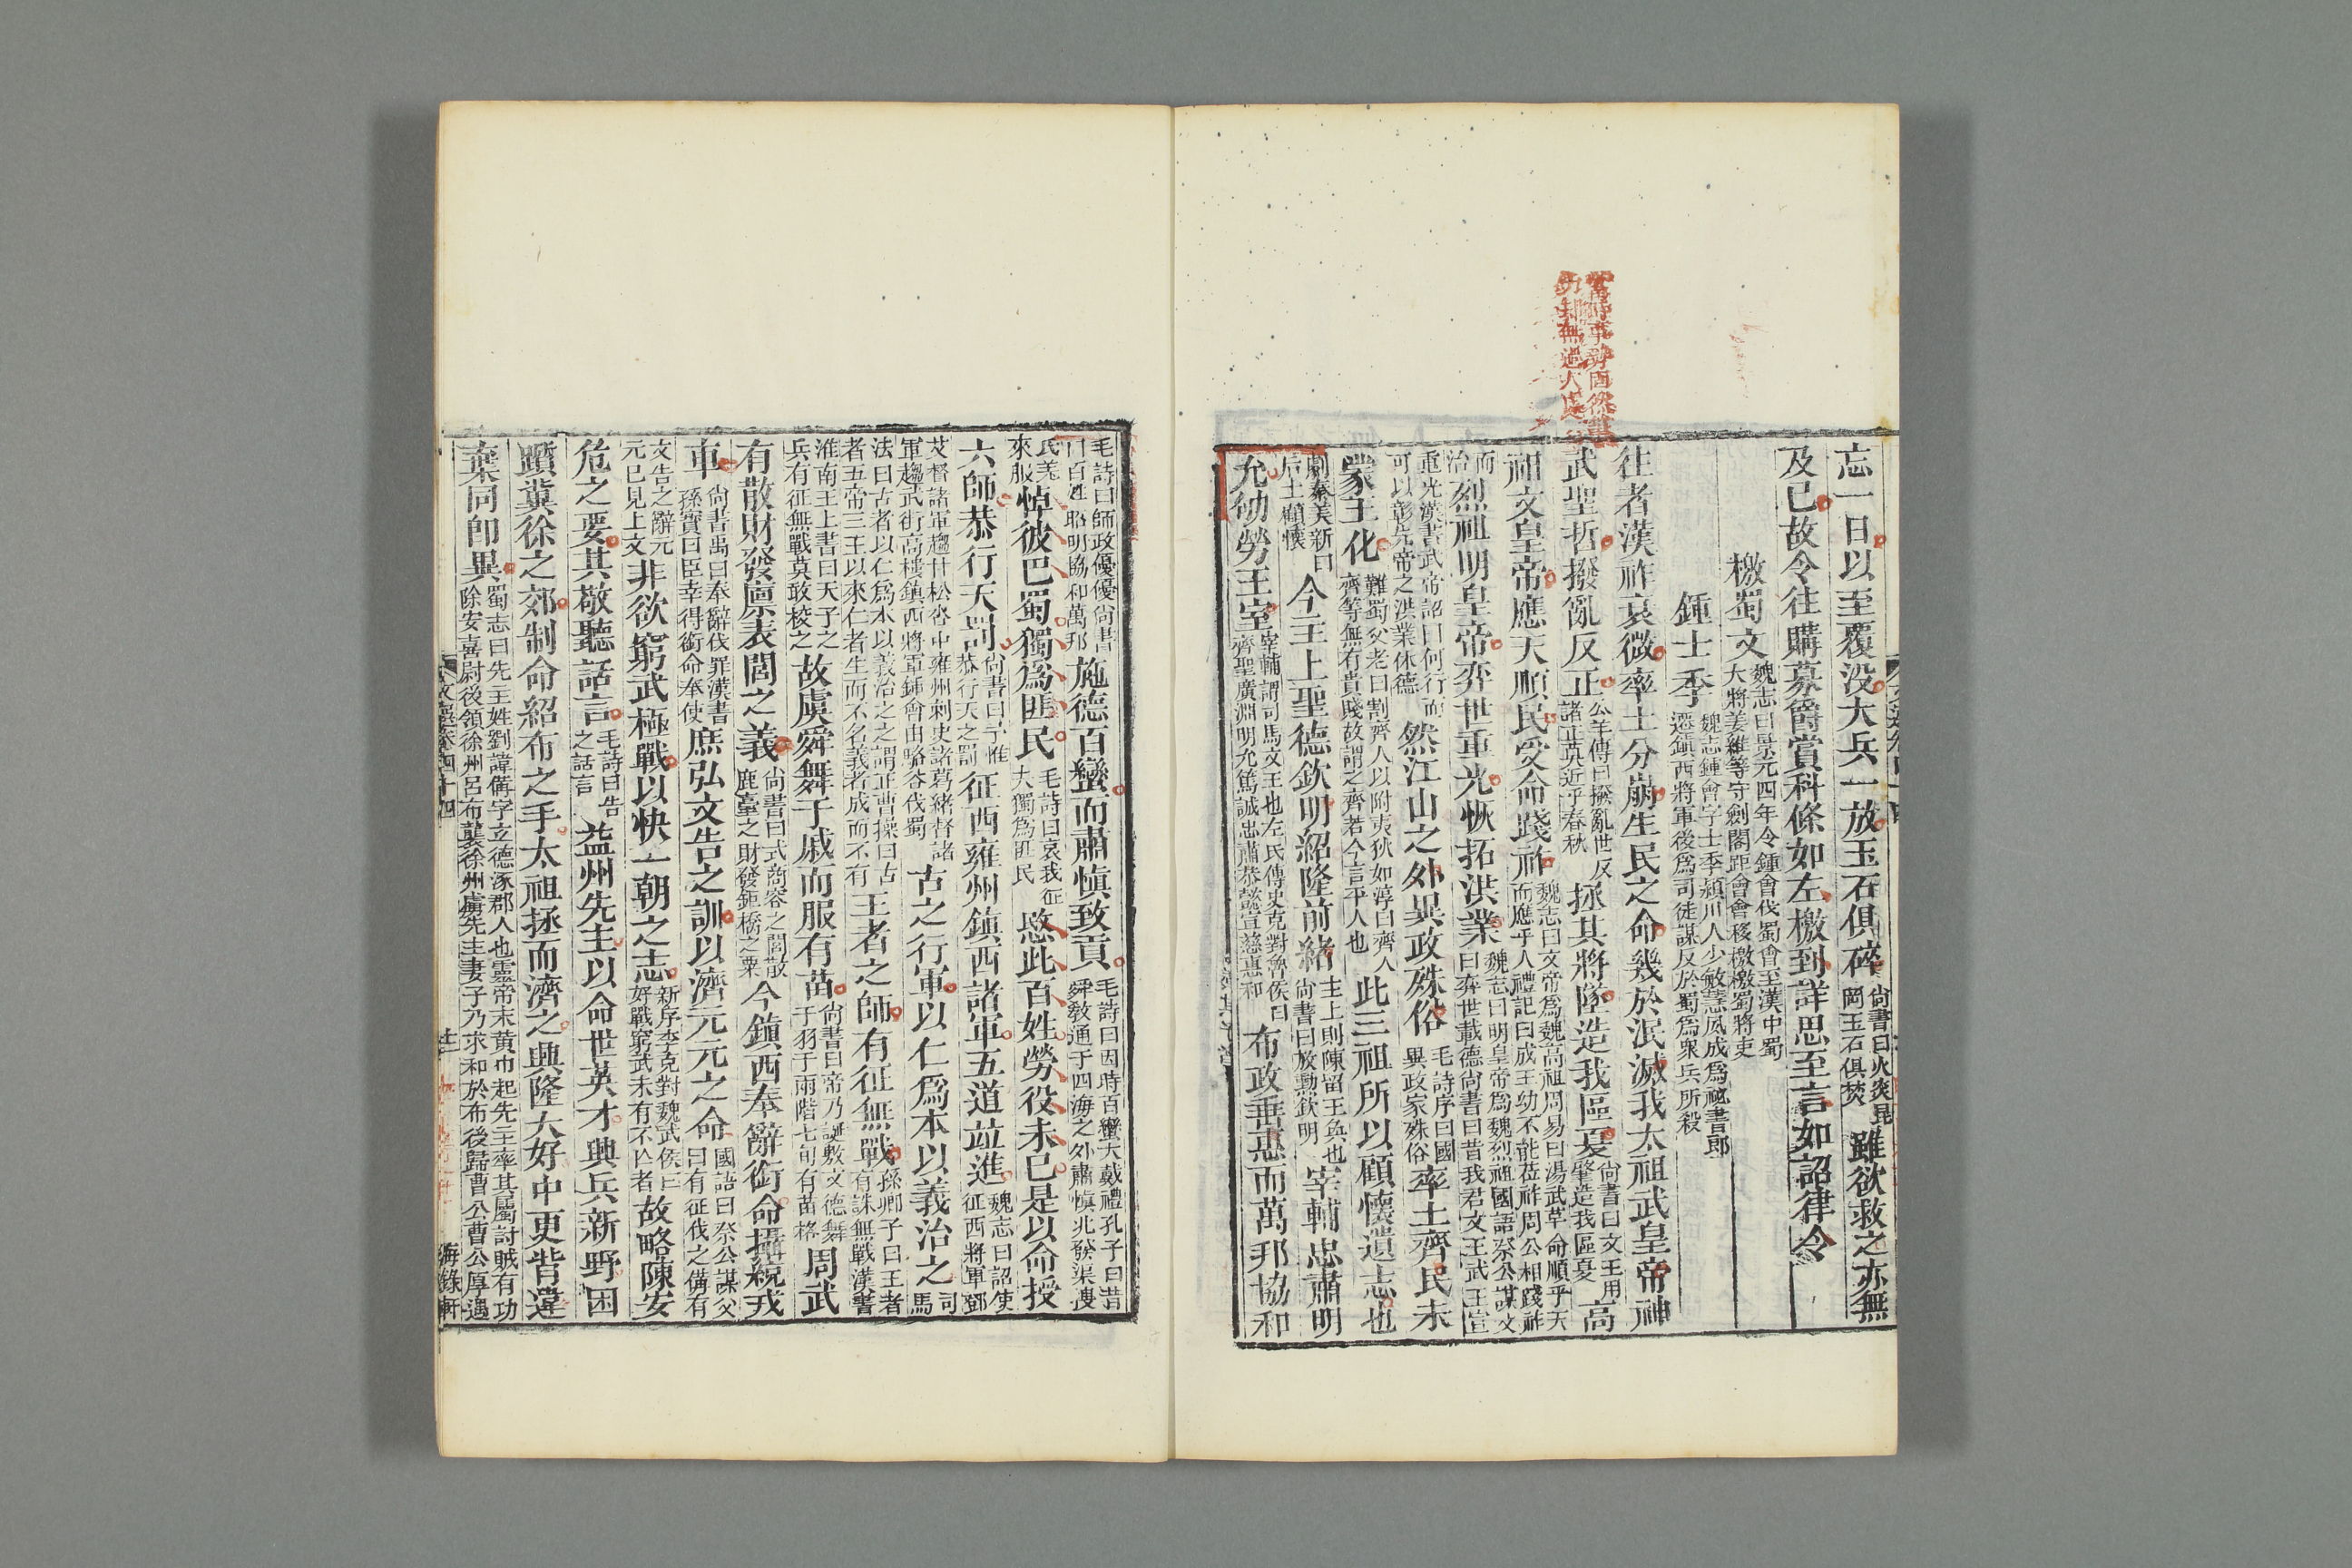 忘一日以至覆没大兵一放玉石俱碎尚書曰火炎崑岡玉石俱焚雖欲救之亦無
及已故令往購募爵賞科條如左檄到詳思至言如詔律令
檄蜀文魏志曰景元四年令鍾會伐蜀會至漢中蜀大將姜維等守劒閣距會會移檄檄蜀將吏
鍾士季魏志鍾會字士季潁川人少敏慧夙成爲祕書郎遷鎮西將軍後爲司徒謀反於蜀爲衆兵所殺
往者漢祚衰微率土分崩生民之命幾於泯滅我太祖武皇帝神
武聖哲撥亂反正公羊傳曰撥亂世反諸正莫近乎春秋拯其將墜造我區夏尚書曰文王用肇造我區夏高
祖文皇帝應天順民受命踐祚魏志曰文帝爲魏高祖周易曰湯武革命順乎天而應乎人禮記曰成王幼不能莅祚周公相踐祚
而治烈祖明皇帝弈世重光恢拓洪業魏志曰明皇帝爲魏烈祖國語祭公謀父曰弈世載德尚書曰昔我君文王武王宣
重光漢書武帝詔曰何行而可以彰先帝之洪業休德然江山之外異政殊俗毛詩序曰國異政家殊俗率土齊民未
蒙王化難蜀父老曰割齊人以附夷狄如淳曰齊人齊等無有貴賤故謂之齊若今言平人也此三祖所以顧懷遺志也
劇秦美新曰后土顧懷今主上聖德欽明紹隆前緒主上則陳留王奐也尚書曰放勳欽明宰輔忠肅明
允劬勞王室宰輔謂司馬文王也左氏傳史克對魯侯曰齊聖廣淵明允篤誠忠肅恭懿宣慈惠和布政垂惠而萬邦協和
毛詩曰師政優優尚書曰百姓昭明協和萬邦施德百蠻而肅慎致貢毛詩曰因時百蠻大戴禮孔子曰昔舜教通于四海之外肅慎北發渠搜
氐羌來服悼彼巴蜀獨爲匪民毛詩曰哀我征夫獨爲匪民愍此百姓勞役未已是以命授
六師恭行天罰尚書曰予惟恭行天之罰征西雍州鎮西諸軍五道並進魏志曰詔使征西將軍鄧
艾督諸軍趨甘松沓中雍州刺史諸葛緒督諸軍趨武街高樓鎮西將軍鍾會由駱谷伐蜀古之行軍以仁爲本以義治之司馬
法曰古者以仁爲本以義治之之謂正曹操曰古者五帝三王以來仁者生而不名義者成而不有王者之師有征無戰孫卿子曰王者有誅無戰漢書
淮南王上書曰天子之兵有征無戰莫敢校之故虞舜舞干戚而服有苗尚書曰帝乃誕敷文德舞干羽于兩階七旬有苗格周武
有散財發廩表閭之義尚書曰式商容之閭散鹿臺之財發鉅橋之粟今鎮西奉辭銜命攝統戎
車尚書禹曰奉辭伐罪漢書孫寶曰臣幸得銜命奉使庶弘文告之訓以濟元元之命國語曰祭公謀父曰有征伐之備有
文告之辭元元已見上文非欲窮武極戰以快一朝之志新序李克對魏武侯曰好戰窮武未有不亡者故略陳安
危之要其敬聽話言毛詩曰告之話言益州先主以命世英才興兵新野困
躓冀徐之郊制命紹布之手太祖拯而濟之興隆大好中更背違
棄同即異蜀志曰先主姓劉諱備字立德涿郡人也靈帝末黃巾起先主率其屬討賊有功除安喜尉後領徐州呂布襲徐州虜先主妻子乃求和於布後歸曹公曹公厚遇
文選卷四十四
海錄軒